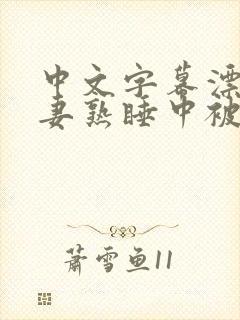 中文字幕漂
妻熟睡中被
萧雪鱼11